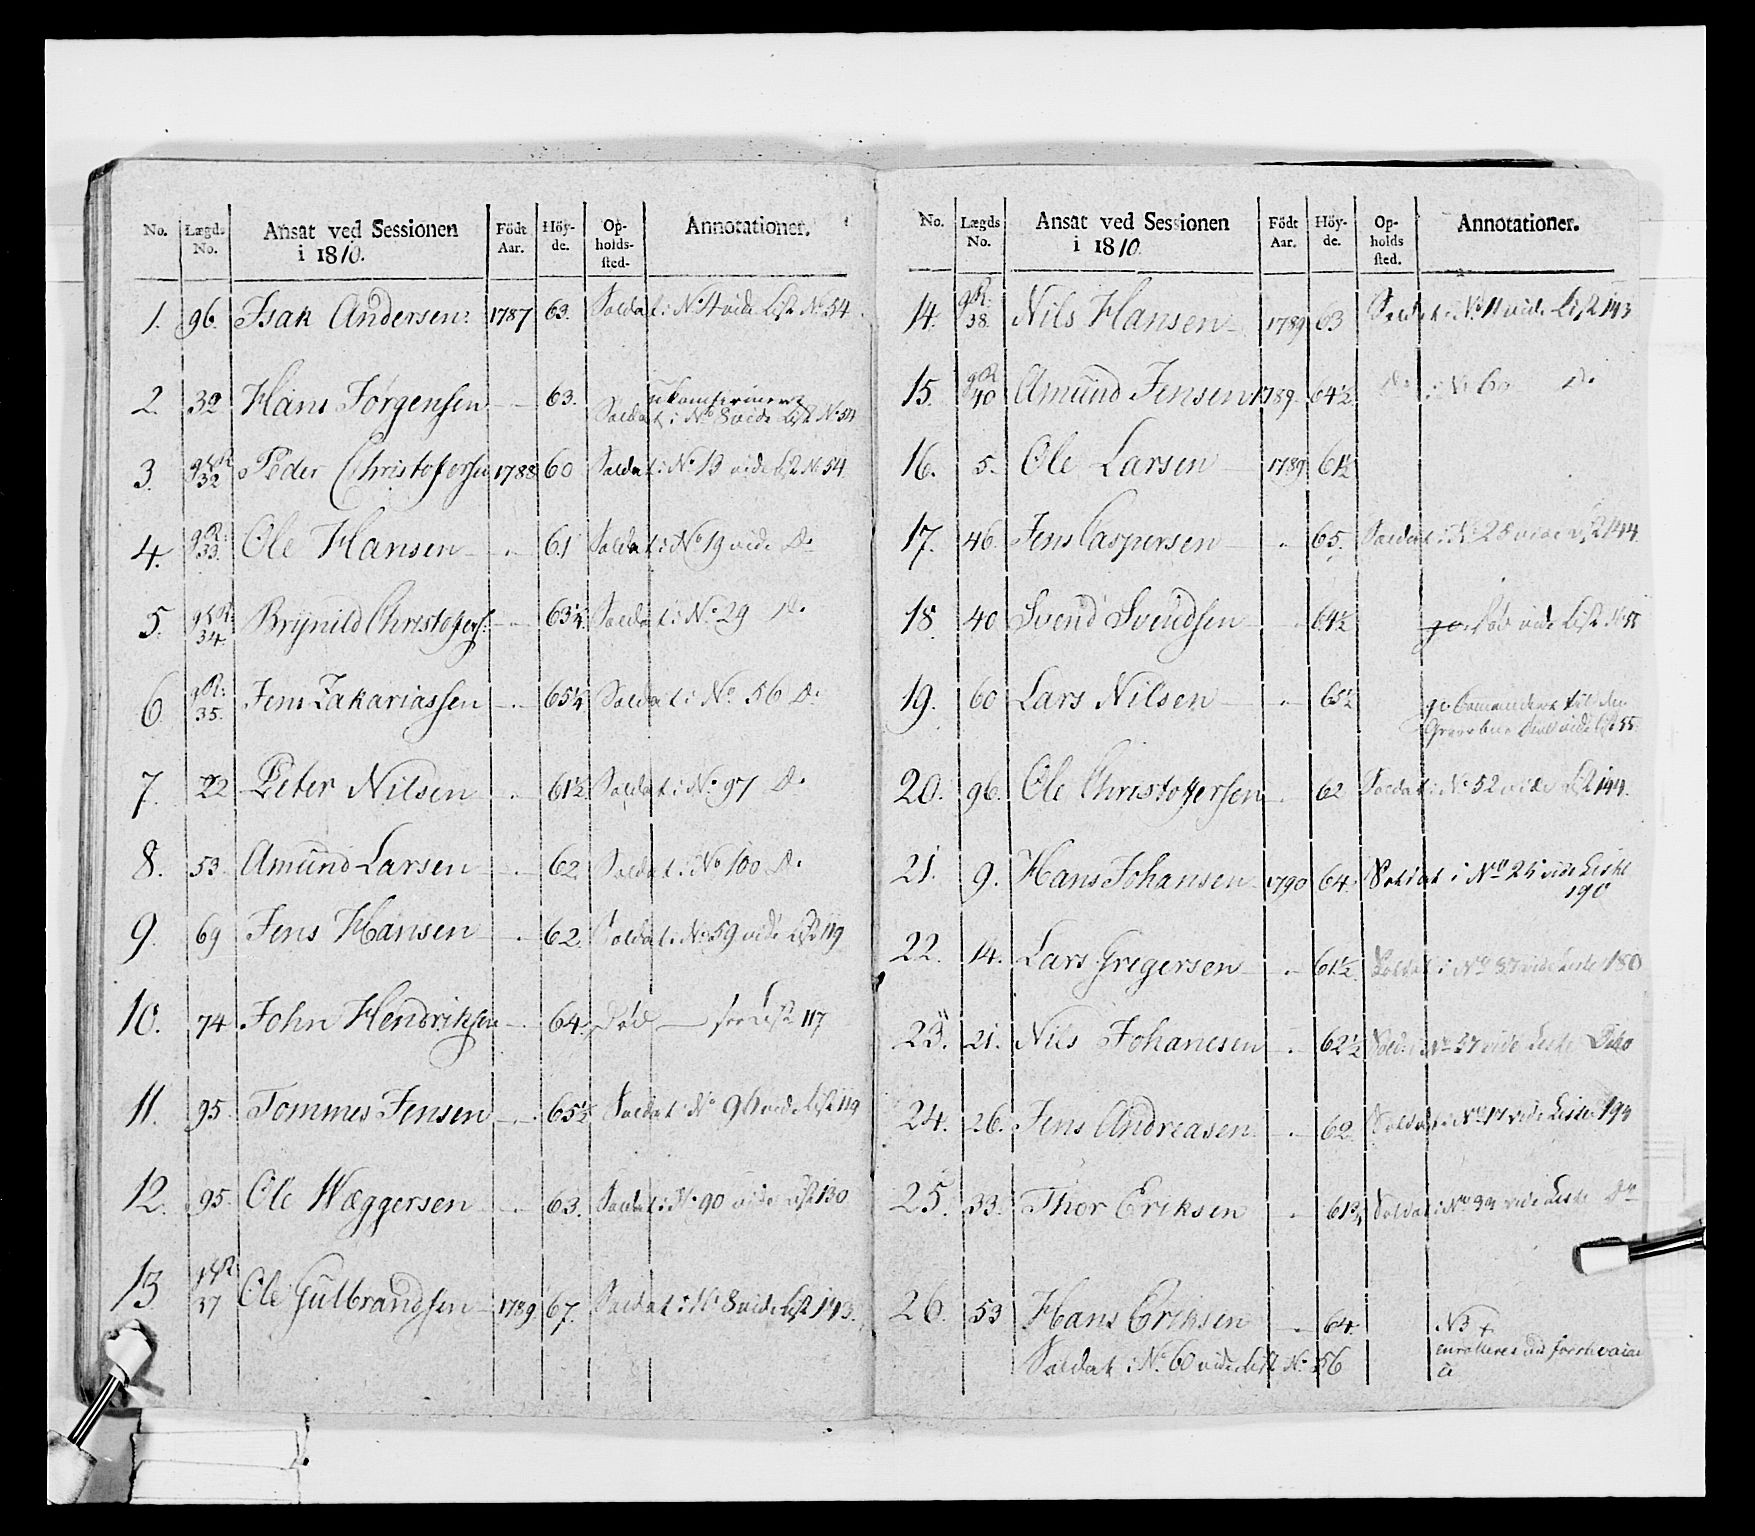 No. Lægds No. Ansat ved Sessionen i 1810. Födt Aar. Höyde. Opholdssted. Annotationer.
1. 96. Isak Andersen: 1787 63. Soldat i No. 4 vide List No. 54
2. 32 Hans Jørgensen — 63. Soldat i No 8 vide List No. 54
3. 32 Peder Christofersen 1788 60 Soldat i No 13 vide List No. 54
4. gR: 33. Ole Hansen — 61 Soldat i No 19 vide Do
5. 34. Brynild Christofers: — 63½ Soldat i No. 29 Do
6 gR: 35. Jens Zakariassen — 65½ Soldat i No. 56 Do
7. 22 Peter Nilsen — 61½ Soldat i No. 97 Do
8. 53. Amund Larsen — 62 Soldat i No 100 Do
9. 69 Jens Hansen — 62 Soldat i No. 59 vide List 119
10. 74 John Hendriksen — 64. Død — see List 117
11. 95. Tommes Jensen — 65½ Soldat i No 96 vide List 119
12. 95. Ole Wæggersen — 63. Soldat i No. 90 vide List 130
13 37 Ole Gulbrandsen 1789 67. Soldat i No 8 vide List 143.
No. Lægds No. Ansat ved Sessionen i 1810. Födt Aar. Höyde. Opholdssted. Annotationer.
14. gR: 38. Nils Hansen 1789 63 Soldat i No. 11 vide List 143
15. gR 40 Amund Jensen 1789 64½ Do i No 60 Do
16. 5. Ole Larsen 1789 61½
17. 46. Jens Caspersen — 65. Soldat i No 28 vide List 144.
18. 40 Svend Svendsen — 64½ Død vide List No 55
19. 60 Lars Nilsen — 65½ Comanderet til den
vide List 55
20. 96. Ole Christoffersen — 62 Soldat i No. 52 vide List 144.
21. 9. Hans Johansen 1790 64 Soldat i No 25 vide Liste
190
22. 14. Lars Gregersen — 61½ Soldat i No 37 vide Liste 180
23. 21. Nils Johanesen — 62½ Sold: i No 57 vide Liste Dito
24. 26. Jens Andreasen — 62. Soldat i No 17 vide Liste 194
25. 33. Thor Eriksen — 61¾ Soldat i No 34 vide Liste Do
26. 53 Hans Eriksen — 64. NB +
enrolleres ved
Soldat i No. 60 vide List No. 56